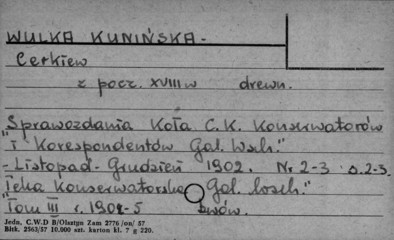 WULKA KUNIŃSKA.
Cerkiew
z pocz. XVIII w drewn.
"Sprawozdania Koła C.K. Konserwatorów
i Korespondentów Gal. Wsch."
- Listopad - Grudzień 1902. Nr 2-3 s. 2-3.
"Teka Konserwatorska Gal. wsch."
"Tom III r. 1905 Lwów.
Jedn. C.W.D B/Olsztyn Zam 2776/on/57
Blłt. 2563/57 10.000 szt. karton kl. 7 g 220.